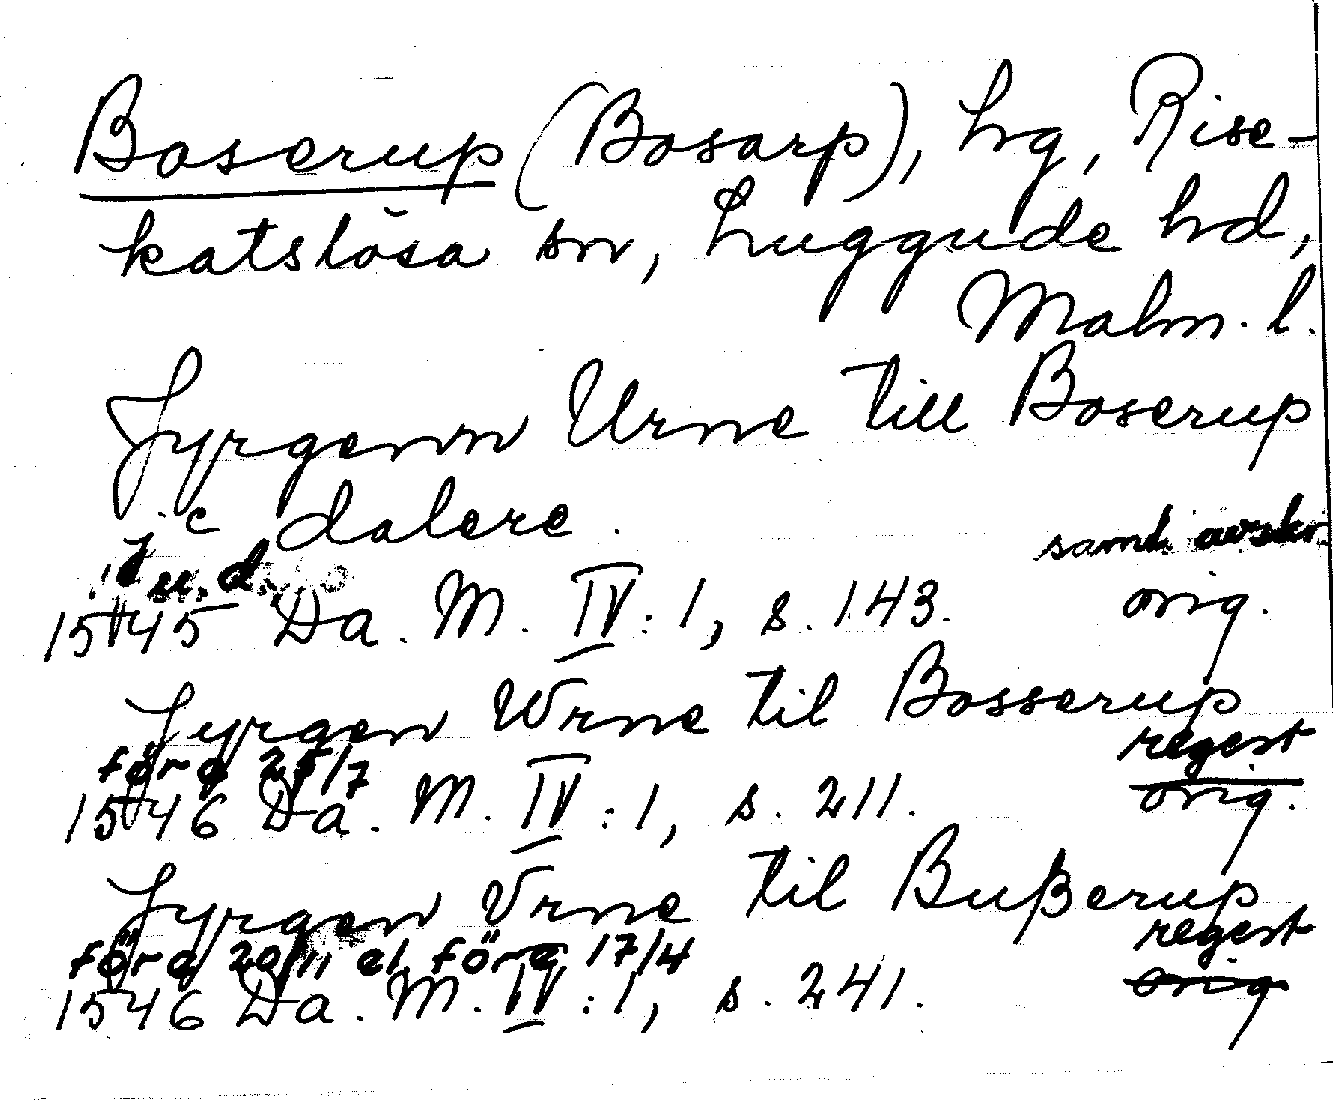 Boserup (Bosarp), hg, Rise-
katslösa sn, Luggude hd,
Malm. l.
Jyrgenn Urne till Boserup
j c dalere.
samt. avskr.
u. d.
1545 Da. M. IV:1, s. 143. orig.
Jyrgen Wrne til Bosserup
före 25/7 regest
1546 Da. M. IV:1, s. 211. orig.
Jyrgen Vrne til Bußerup
före 20/11 el. före 17/4 regest
1546 Da. M. IV:1, s. 241. orig